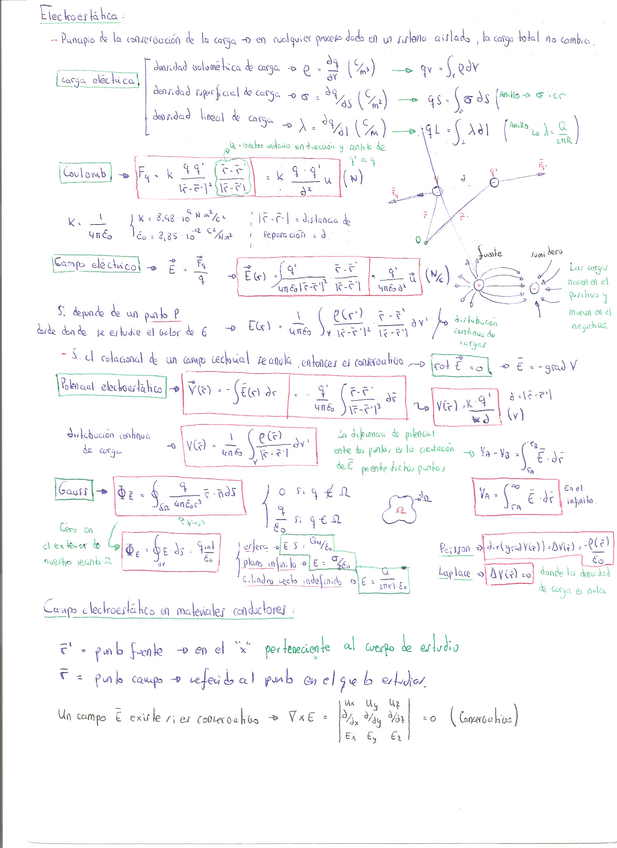 Electroestática:
-- Principio de la conservación de la carga → en cualquier proceso dado en un sistema aislado, la carga total no cambia.
carga eléctrica
densidad volumétrica de carga → ρ = ∂q/∂V (C/m³) → qv = ∫ᵥ ρ dV
densidad superficial de carga → σ = ∂q/∂S (C/m²) → qS = ∫ₛ σ dS (Anillo → σ = cτ
densidad lineal de carga → λ = ∂q/∂l (C/m) → qL = ∫ λ dl (Anillo ↳ λ = Q/2πR)
u = vector unitario en dirección y sentido de q' a q
Coulomb → F_q = k q q'/|r̄-r̄'|² r̄-r̄'/|r̄-r̄'| = k q·q'/d² u (N)
K = 1/4πε₀ { K = 8,98·10⁹ N·m²/C² ; |r̄-r̄'| = distancia de
ε₀ = 8,85·10⁻¹² C²/Nm² separación = d
F̄q q d q' F̄q'
r̄ r̄' O
fuente sumidero
Campo eléctrico → E⃗ = F⃗q/q → E⃗(r) = ∫ q'/4πε₀|r̄-r̄'|² r̄-r̄'/|r̄-r̄'| = q'/4πε₀d² u⃗ (N/C)
Las cargas nacen en el positivo y mueren en el negativo.
Si depende de un punto P
desde donde se estudie el valor de E → E(r) = 1/4πε₀ ∫ᵥ ρ(r')/|r̄-r̄'|² r̄-r̄'/|r̄-r̄'| dv' distribución continua de cargas
- Si el rotacional de un campo vectorial se anula, entonces es conservativo → rot E⃗ = 0 → E⃗ = -grad V
Potencial electroestático → V⃗(r̄) = -∫E⃗(r) dr = - q'/4πε₀ ∫ r̄-r̄'/|r̄-r̄'|³ dr̄ → V(r̄) = K·q'/d d=|r̄-r̄'| (V)
distribución continua de carga → V(r̄) = 1/4πε₀ ∫ᵥ ρ(r̄)/|r̄-r̄'| dv'
La diferencia de potencial entre dos puntos es la circulación de E⃗ por entre dichos puntos → V_A - V_B = ∫ E⃗·dr̄
Gauss → Φ_E = ∮ q/4πε₀r³ r̄·n̄ dS { 0 si q ∉ Ω
q/ε₀ si q ∈ Ω
Ω ∂Ω
V_A = ∫ E⃗·dr̄ En el infinito.
Cero en el exterior de nuestro recinto Ω
Φ_E = ∮ E dS = q int/ε₀
esfera → E·S = Qint/ε₀
plano infinito → E = σ/2ε₀
Cilindro recto indefinido → E = Q/2πrLε₀
Poisson → div(grad V(r̄)) = ΔV(r̄) = -ρ(r̄)/ε₀
Laplace → ΔV(r̄) = 0 donde la densidad de carga es nula
Campo electroestático en materiales conductores:
r̄' = punto fuente → en el "x" perteneciente al cuerpo de estudio
r̄ = punto campo → referido al punto en el que lo estudias.
Un campo E⃗ existe si es conservativo → ∇×E = | ux uy uz
∂/∂x ∂/∂y ∂/∂z | = 0 (Conservativo)
Ex Ey Ez